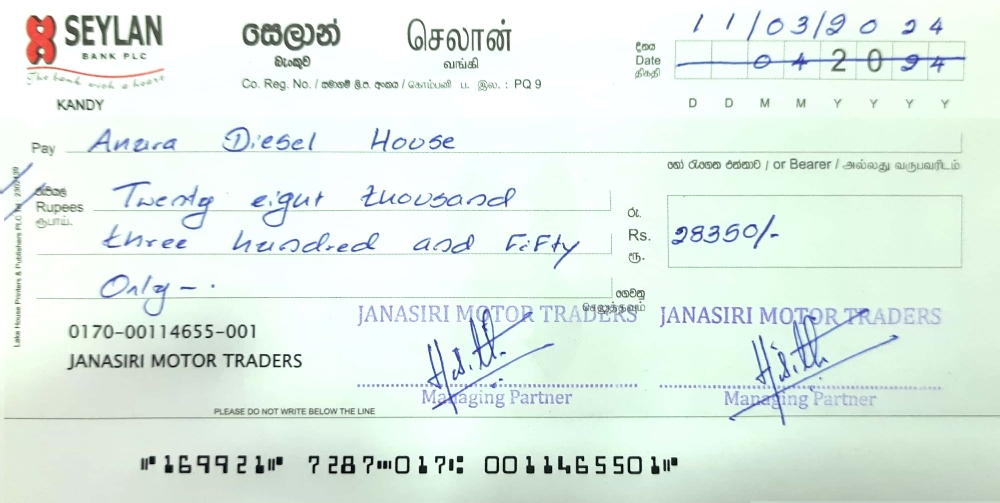 SEYLAN
BANK PLC
The bank with a heart
සෙලාන්
බැංකුව
செலான்
வங்கி
Co. Reg. No. / සමාගම් ලි.ප. අංකය / கொம்பனி ப. இல. : PQ 9
KANDY
11/03/2024
දිනය
Date
திகதி
04 2024
D D M M Y Y Y Y
Pay Anura Diesel House
හෝ රැගෙන එන්නාට / or Bearer / அல்லது வருபவரிடம்
රුපියල්
Rupees
ரூபாய்.
Twenty eight thousand
three hundred and Fifty
Only –.
රු.
Rs.
ரூ.
28350/-
ගෙවනු
செலுத்தவும்
0170-00114655-001
JANASIRI MOTOR TRADERS
JANASIRI MOTOR TRADERS
Managing Partner
JANASIRI MOTOR TRADERS
Managing Partner
PLEASE DO NOT WRITE BELOW THE LINE
Lake House Printers & Publishers PLC
⑈169921⑈ 7287⑉017⑆ 0011465501⑈